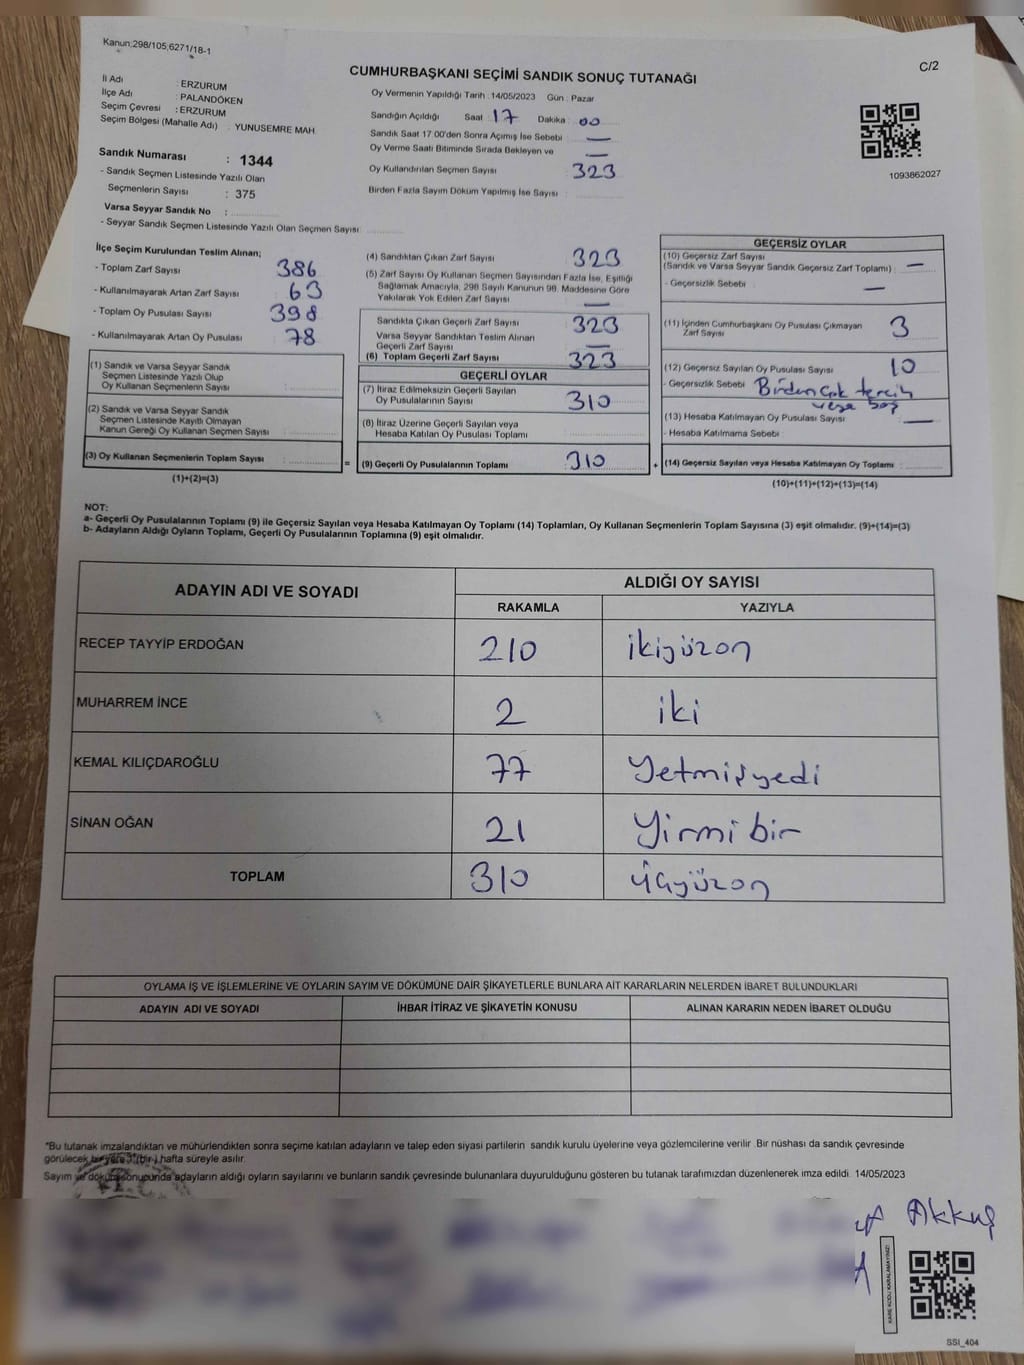 Kanun:298/105;6271/18-1
C/2
CUMHURBAŞKANI SEÇİMİ SANDIK SONUÇ TUTANAĞI
İl Adı : ERZURUM
İlçe Adı : PALANDÖKEN
Seçim Çevresi : ERZURUM
Seçim Bölgesi (Mahalle Adı) : YUNUSEMRE MAH.
Sandık Numarası : 1344
- Sandık Seçmen Listesinde Yazılı Olan
Seçmenlerin Sayısı : 375
Varsa Seyyar Sandık No :
- Seyyar Sandık Seçmen Listesinde Yazılı Olan Seçmen Sayısı:
Oy Vermenin Yapıldığı Tarih : 14/05/2023 Gün : Pazar
Sandığın Açıldığı Saat : 17 Dakika : 00
Sandık Saat 17.00'den Sonra Açımış İse Sebebi : —
Oy Verme Saati Bitiminde Sırada Bekleyen ve —
Oy Kullandırılan Seçmen Sayısı : 323
Birden Fazla Sayım Döküm Yapılmış İse Sayısı :
1093862027
İlçe Seçim Kurulundan Teslim Alınan;
- Toplam Zarf Sayısı : 386
- Kullanılmayarak Artan Zarf Sayısı : 63
- Toplam Oy Pusulası Sayısı : 398
- Kullanılmayarak Artan Oy Pusulası : 78
(1) Sandık ve Varsa Seyyar Sandık
Seçmen Listesinde Yazılı Olup
Oy Kullanan Seçmenlerin Sayısı :
(2) Sandık ve Varsa Seyyar Sandık
Seçmen Listesinde Kayıtlı Olmayan
Kanun Gereği Oy Kullanan Seçmen Sayısı :
(3) Oy Kullanan Seçmenlerin Toplam Sayısı :
(1)+(2)=(3)
(4) Sandıktan Çıkan Zarf Sayısı : 323
(5) Zarf Sayısı Oy Kullanan Seçmen Sayısından Fazla İse, Eşitliği
Sağlamak Amacıyla, 298 Sayılı Kanunun 98. Maddesine Göre
Yakılarak Yok Edilen Zarf Sayısı : —
Sandıkta Çıkan Geçerli Zarf Sayısı : 323
Varsa Seyyar Sandıktan Teslim Alınan
Geçerli Zarf Sayısı : —
(6) Toplam Geçerli Zarf Sayısı : 323
GEÇERLİ OYLAR
(7) İtiraz Edilmeksizin Geçerli Sayılan
Oy Pusulalarının Sayısı : 310
(8) İtiraz Üzerine Geçerli Sayılan veya
Hesaba Katılan Oy Pusulası Toplamı :
= (9) Geçerli Oy Pusulalarının Toplamı : 310 +
GEÇERSİZ OYLAR
(10) Geçersiz Zarf Sayısı
(Sandık ve Varsa Seyyar Sandık Geçersiz Zarf Toplamı) : —
- Geçersizlik Sebebi : —
(11) İçinden Cumhurbaşkanı Oy Pusulası Çıkmayan
Zarf Sayısı : 3
(12) Geçersiz Sayılan Oy Pusulası Sayısı : 10
- Geçersizlik Sebebi : Birden çok tercih
veya boş
(13) Hesaba Katılmayan Oy Pusulası Sayısı : —
- Hesaba Katılmama Sebebi :
(14) Geçersiz Sayılan veya Hesaba Katılmayan Oy Toplamı :
(10)+(11)+(12)+(13)=(14)
NOT:
a- Geçerli Oy Pusulalarının Toplamı (9) ile Geçersiz Sayılan veya Hesaba Katılmayan Oy Toplamı (14) Toplamları, Oy Kullanan Seçmenlerin Toplam Sayısına (3) eşit olmalıdır. (9)+(14)=(3)
b- Adayların Aldığı Oyların Toplamı, Geçerli Oy Pusulalarının Toplamına (9) eşit olmalıdır.
ADAYIN ADI VE SOYADI ALDIĞI OY SAYISI
RAKAMLA YAZIYLA
RECEP TAYYİP ERDOĞAN 210 ikiyüzon
MUHARREM İNCE 2 iki
KEMAL KILIÇDAROĞLU 77 Yetmişyedi
SİNAN OĞAN 21 Yirmibir
TOPLAM 310 üçyüzon
OYLAMA İŞ VE İŞLEMLERİNE VE OYLARIN SAYIM VE DÖKÜMÜNE DAİR ŞİKAYETLERLE BUNLARA AİT KARARLARIN NELERDEN İBARET BULUNDUKLARI
ADAYIN ADI VE SOYADI İHBAR İTİRAZ VE ŞİKAYETİN KONUSU ALINAN KARARIN NEDEN İBARET OLDUĞU
*Bu tutanak imzalandıktan ve mühürlendikten sonra seçime katılan adayların ve talep eden siyasi partilerin sandık kurulu üyelerine veya gözlemcilerine verilir .Bir nüshası da sandık çevresinde
görülecek bir yere 1 (bir) hafta süreyle asılır.
Sayım ve döküm sonucunda adayların aldığı oyların sayılarını ve bunların sandık çevresinde bulunanlara duyurulduğunu gösteren bu tutanak tarafımızdan düzenlenerek imza edildi. 14/05/2023
Akkuş
KARE KODU KARALAMAYINIZ!
SSI_404